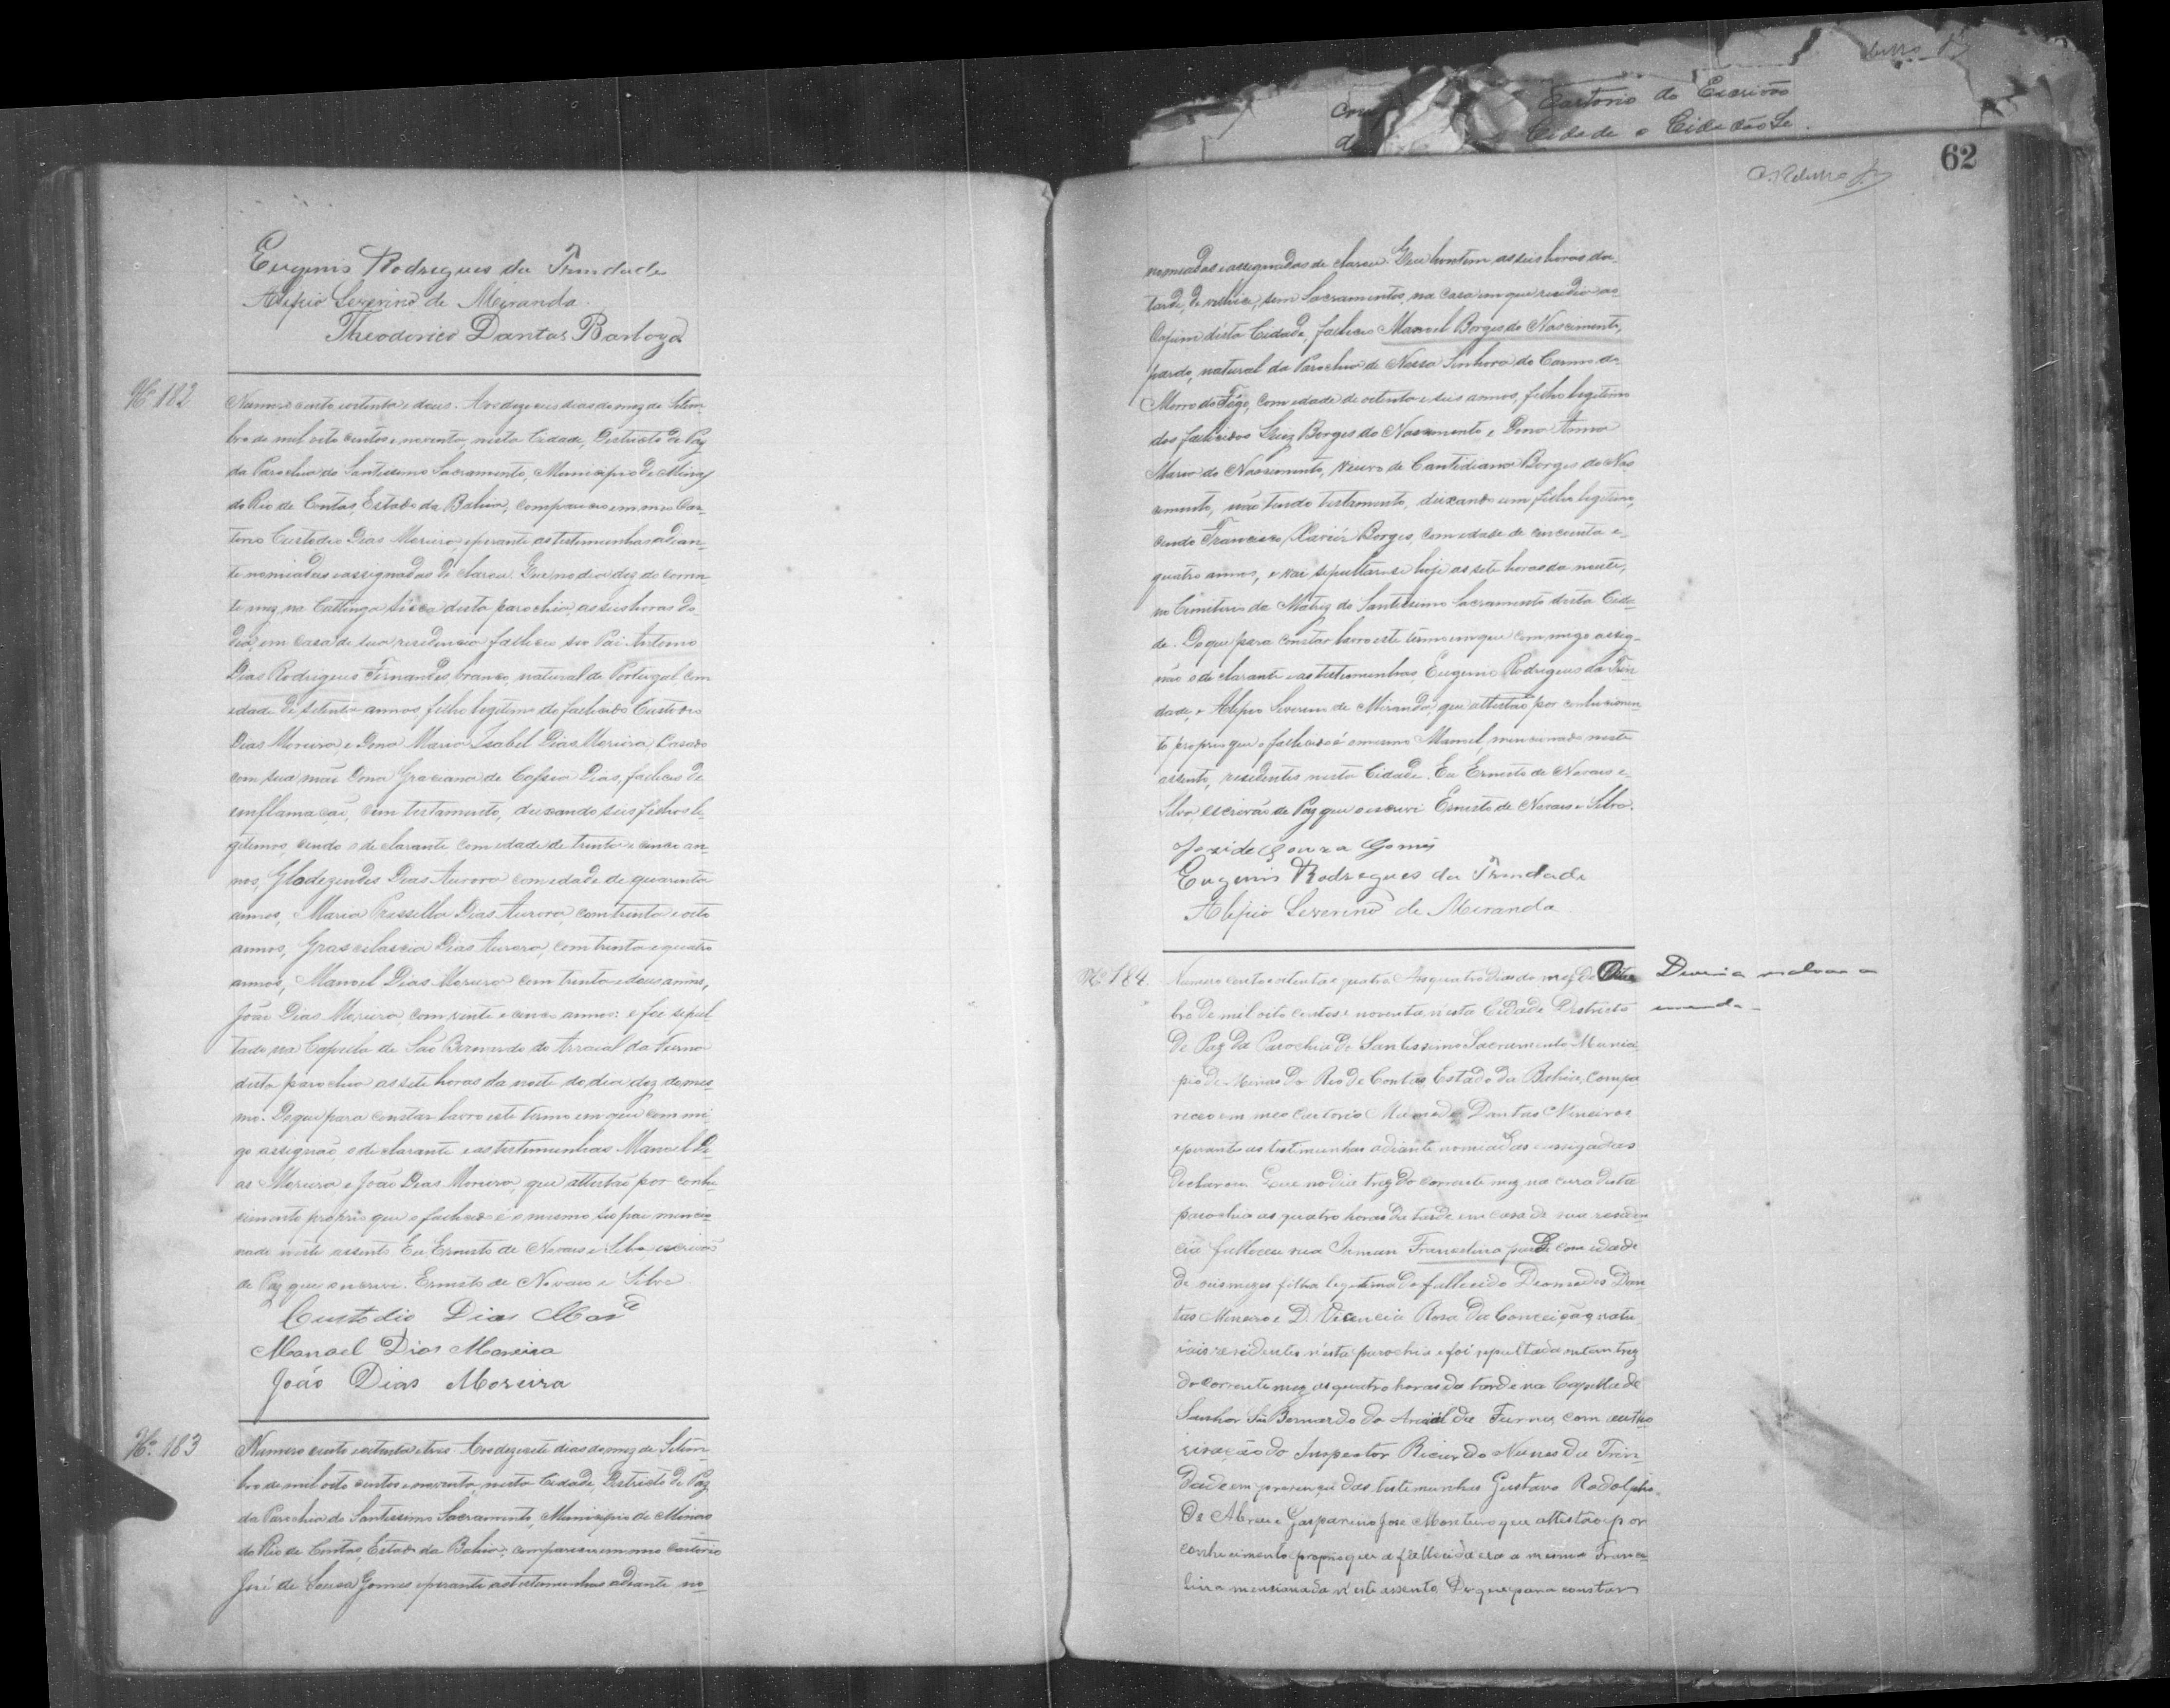 Eugenio Rodrigues da Trindade
Alipio Severino de Meiranda.
Theodorico Dantas Barboza
Nº 182
Numero cento e oitenta e dous. Aos dezeseis dias do mez de Setem-
bro de mil oito centos e noventa, nesta Cidade, Districto de Paz
da Parochia do Santissimo Sacramento, Municipio de Minas
do Rio de Contas, Estado da Bahia, compareceo em meu Car-
torio Custodio Dias Moreira, e perante as testemunhas adian-
te nomiadas e assignadas de clarou. Que no dia dez do corren-
te mez, na Cattinga sêcca desta parochia, as seis horas do
dia, em casa de sua residencia falleceu seu Pai Antonio
Dias Rodrigues Fernandes, branco, natural de Portugal com
idade de setenta annos, filho legitimo do fallecido Custodio
Dias Moreira, e Dona Maria Isabel Dias Moreira, Casado
com sua mãe Dona Graciana de Cassia Dias, falleceo de
imflamação, sem testamento, deixando seis filhos le-
gitimos, sendo o declarante com edade de trinta e cinco an-
nos, Gladezendes Dias Aurora com edade de quarenta
annos, Maria Pressilla Dias Aurora com trinta e oito
annos, Dias Aurora, com trinta e quatro
annos, Manoel Dias Moreira com trinta e dous annos,
João Dias Moreira, com vinte e cinco annos: e foi sepul-
tado na Capella de São Bernardo do Arraial da Furna
desta parochia as sete horas da noite do dia dez do mes-
mo. Do que para constar lavro este termo em que com mi-
go assignão, o declarante e as testemunhas Manoel Di-
as Moreira e João Dias Moreira, que attestão por conhe-
cimento proprio que o fallecido é o mesmo seo pai mencio-
nado neste assento. Eu Ernesto de Novais e Silva escrivão
de Paz que o escrevi. Ernesto de Novais e Silva
Custodio Dias Morª
Manoel Dias Moreira
João Dias Moreira
Nº 183
Numero cento e oitenta e tres. Aos dezesete dias do mez de Setem-
bro de mil oito centos e noventa, nesta Cidade, Districto de Paz
da Parochia do Santissimo Sacramento, Municipio de Minas
do Rio de Contas, Estado da Bahia, compareceu em meo Cartorio
José de Sousa Gomes e perante as testemunhas adiante no-
Cartorio do Escrivão
Cidade o Cidadão Se
62
nomiadas e assignadas de clarou. Que hontem, as seis horas da
tarde, de velhice, sem Sacramentos, na casa em que residia ao
Capim desta Cidade, falleceo Manoel Borges do Nascimento,
pardo, natural da Parochia de Nossa Senhora do Carmo do
Morro do Fôgo, com edade de oitenta e seis annos, filho legitimo
dos fallecidos Luiz Borges do Nascimento e Dona Anna
Maria do Nascimento, viuvo de Cantidiana Borges do Nas-
cimento, não tendo testamento, deixando um filho legitimo,
sendo Francisco Xavier Borges, com edade de cincoenta e
quatro annos, e vai sepultar-se hoje as sete horas da noute,
no Cimiterio da Matriz do Santissimo Sacramento desta Cida-
de. Do que para constar lavro este têrmo em que commigo assig-
não o declarante e as testemunhas, Eugenio Rodrigues da Trin-
dade, e Alipio Severino de Miranda, que attestão por conhecimen-
to proprio que o fallecido é o mesmo Manoel, mencionado neste
assento, residentes nesta Cidade. Eu Ernesto de Novais e
Silva, escrivão de Paz que o escrevi. Ernesto de Novais e Silva.
José de Souza Gomes
Eugenio Rodrigues da Trindade
Alipio Severino de Meranda
Nº 184.
Numero cento e oitenta e quatro. Aos quatro dias do mez de Outu-
bro de mil oito centos e noventa, n'esta Cidade Districto
de Paz da Parochia do Santissimo Sacramento Munici-
pio de Minas do Rio de Contas, Estado da Bahia, compa
receo em meo Cartorio Dantas Mineiro e
e perante as testemunhas adiante nomiadas e assignadas
declarou. Que no dia trez do corrente mez na desta
parochia as quatro horas da tarde em casa de sua residen
cia falleceu sua Irman Francelina parda com idade
de seis mezes filha legitima do fallecido Diomedes Dan-
tas Mineiro e D. Vicencia Rosa da Conceição, natu
raes residentes n'esta parochia e foi sepultada ontem trez
do corrente mez as quatro horas da tarde na Capella de
Senhor São Bernardo do Arraial da Furna, com autho
risação do Inspector Ricardo Nunes da Trin-
dade em prezença das testemunhas Gustavo Rodolpho
de Abreu e Gasparino José Monteiro que attestão por
conhecimento proprio que a fallecida era a mesma France-
lina mensionada n'este assento. Do que para constar